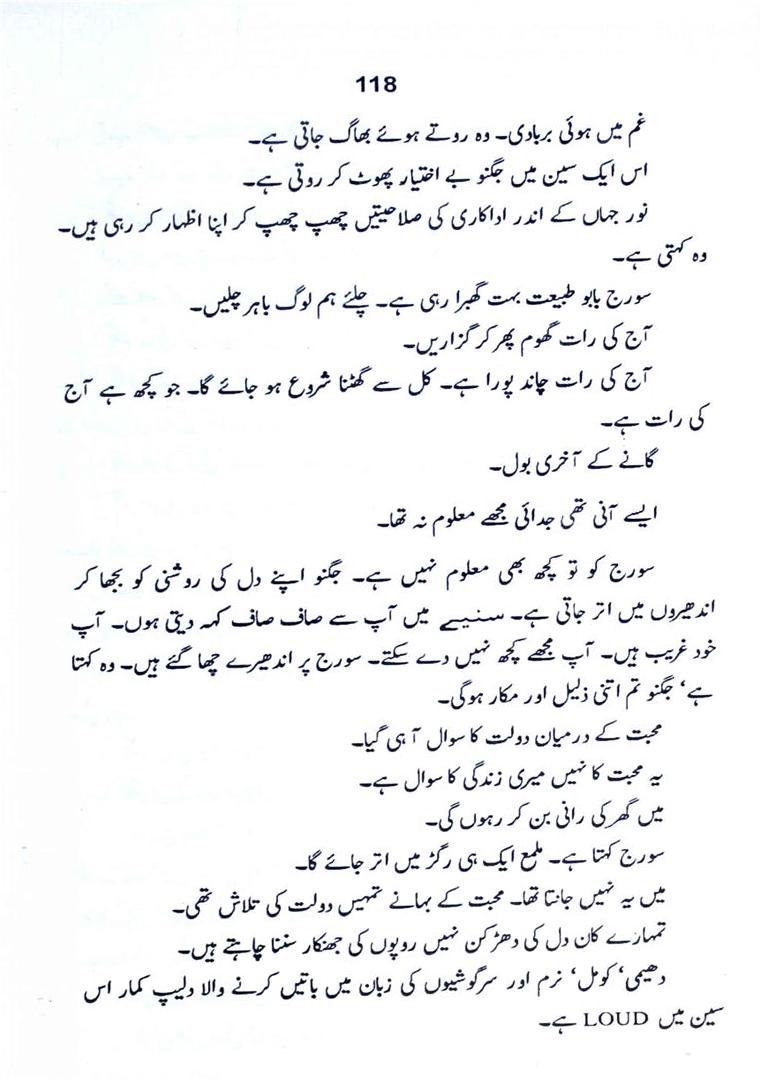 118
غم میں ہوئی بربادی۔ وہ روتے ہوئے بھاگ جاتی ہے۔
اس ایک سین میں جگنو بے اختیار پھوٹ کر روتی ہے۔
نور جہاں کے اندر اداکاری کی صلاحیتیں چھپ چھپ کر اپنا اظہار کر رہی ہیں۔
وہ کہتی ہے۔
سورج بابو طبیعت بہت گھبرا رہی ہے۔ چلئے ہم لوگ باہر چلیں۔
آج کی رات گھوم پھر کر گزاریں۔
آج کی رات چاند پورا ہے۔ کل سے گھٹنا شروع ہو جائے گا۔ جو کچھ ہے آج
کی رات ہے۔
گانے کے آخری بول۔
ایسے آنی تھی جدائی مجھے معلوم نہ تھا۔
سورج کو تو کچھ بھی معلوم نہیں ہے۔ جگنو اپنے دل کی روشنی کو بجھا کر
اندھیروں میں اتر جاتی ہے۔ سنیے میں آپ سے صاف صاف کہہ دیتی ہوں۔ آپ
خود غریب ہیں۔ آپ مجھے کچھ نہیں دے سکتے۔ سورج پر اندھیرے چھا گئے ہیں۔ وہ کہتا
ہے، جگنو تم اتنی ذلیل اور مکار ہوگی۔
محبت کے درمیان دولت کا سوال آ ہی گیا۔
یہ محبت کا نہیں میری زندگی کا سوال ہے۔
میں گھر کی رانی بن کر رہوں گی۔
سورج کہتا ہے۔ ملمع ایک ہی رگڑ میں اتر جائے گا۔
میں یہ نہیں جانتا تھا۔ محبت کے بہانے تمہیں دولت کی تلاش تھی۔
تمہارے کان دل کی دھڑکن نہیں روپوں کی جھنکار سننا چاہتے ہیں۔
دھیمی، کومل، نرم اور سرگوشیوں کی زبان میں باتیں کرنے والا دلیپ کمار اس
سین میں LOUD ہے۔